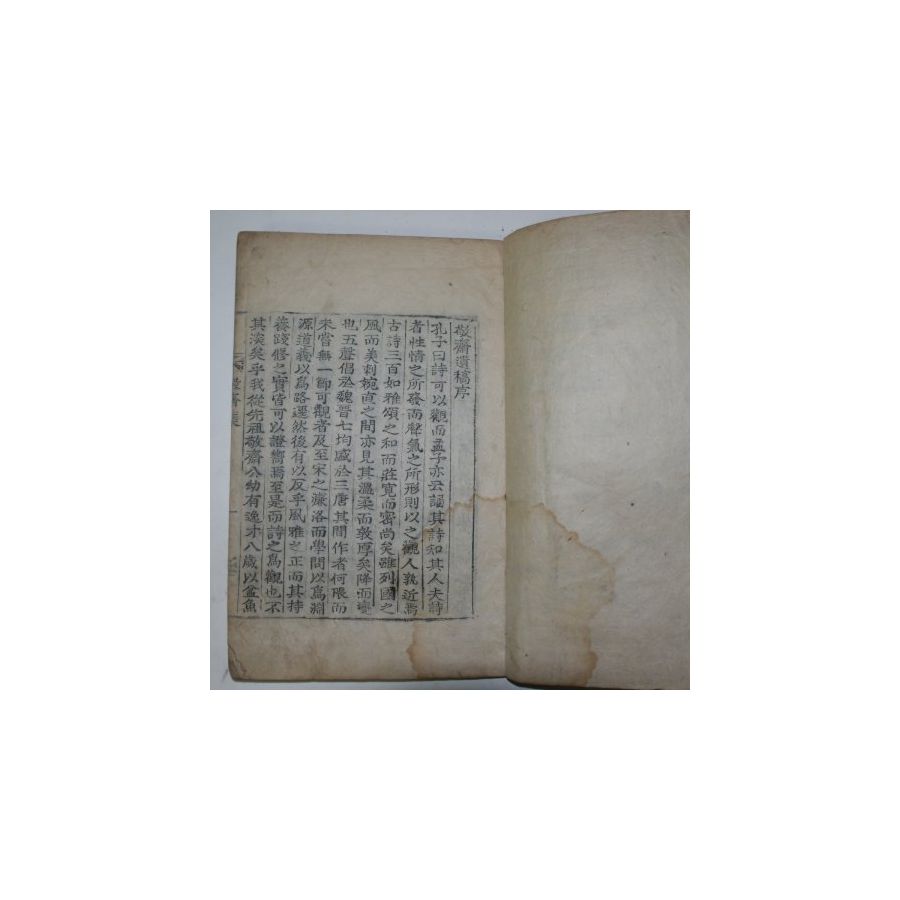 敬齋遺稿序
孔子曰詩可以觀而孟子亦云誦其詩知其人夫詩
者性情之所發而聲氣之所形則以之觀人孰近焉
古詩三百如雅頌之和而莊寬而密尚矣雖列國之
風而美刺婉直之間亦見其溫柔而敦厚矣降而變
也五聲倡於魏晉七均盛於三唐其間作者何限而
未嘗無一節可觀者及至宋之濂洛而學問以爲淵
源道義以爲路逕然後有以反乎風雅之正而其持
養踐修之實皆可以證嚮焉至是而詩之爲觀也不
其深矣乎我從先祖敬齋公幼有逸才八歲以盆魚